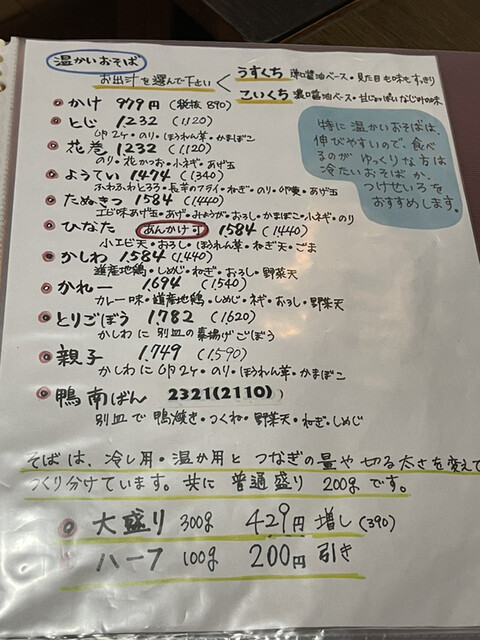 温かいおそば
お出汁を選んで下さい
うすくち 薄口醤油ベース・見た目も味もすっきり
こいくち 濃口醤油ベース・甘じょっぱいなじみの味
かけ 979円 (税抜 890)
とじ 1232 (1120)
卵2ヶ・のり・ほうれん草・かまぼこ
花巻 1232 (1120)
のり・花かつお・小ネギ・あげ玉
ようてい 1474 (1340)
ふわふわとろろ・長芋のフライ・ねぎ・のり・卵黄・あげ玉
たぬきつ 1584 (1440)
エビ味あげ玉・あげ・しょうが・おろし・かまぼこ・小ネギ・のり
ひなた あんかけ可 1584 (1440)
小エビ天・おろし・ほうれん草・ねぎ天・ごま
かしわ 1584 (1440)
道産地鶏・しめじ・ねぎ・おろし・野菜天
かれー 1694 (1540)
カレー味・道産地鶏・しめじ・ネギ・おろし・野菜天
とりごぼう 1782 (1620)
かしわに別皿の素揚げごぼう
親子 1749 (1590)
かしわに卵2ヶ・のり・ほうれん草・かまぼこ
鴨南ばん 2321(2110)
別皿で 鴨焼き・つくね・野菜天・ねぎ・しめじ
特に温かいおそばは、
伸びやすいので、食べ
るのがゆっくりな方は
冷たいおそばか、
つけせいろを
おすすめします。
そばは、冷し用・温か用と つなぎの量や切る太さを変えて
つくり分けています。共に 普通盛り 200gです。
大盛り 300g 429円 増し (390)
ハーフ 100g 200円 引き